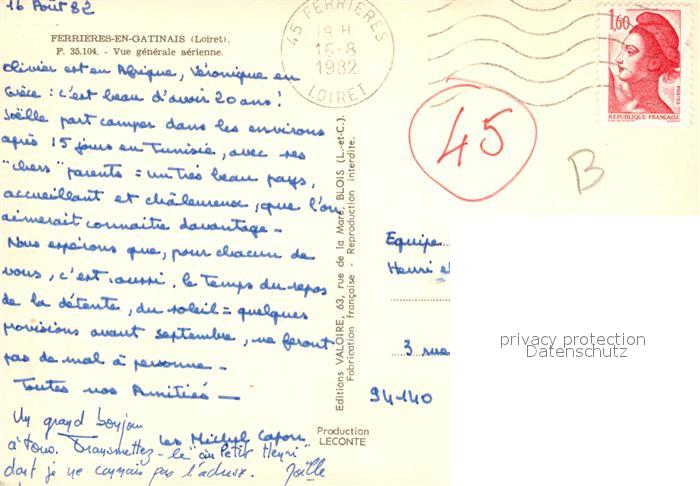 16 Août 82
FERRIERES-EN-GATINAIS (Loiret).
F. 35.104. - Vue générale aérienne.
Olivier est en Afrique, Véronique en
Grèce : c'est beau d'avoir 20 ans !
Joëlle part camper dans les environs
après 15 jours en Tunisie, avec ses
"chers" parents = un très beau pays,
accueillant et chaleureux, que l'on
aimerait connaître davantage -
Nous espérons que, pour chacun de
vous, c'est aussi le temps du repos
de la détente, du soleil = quelques
provisions avant septembre, ne feront
pas de mal à personne -
Toutes nos Amitiés -
les Michel
Un grand bonjour
à tous. Transmettez-le "au Petit Henri"
dont je ne connais pas l'adresse. Joëlle
Editions VALOIRE, 63, rue de la Mare, BLOIS (L.-et-C.)
Fabrication française - Reproduction interdite.
Production
LECONTE
45 FERRIERES
18 H
16-8
1982
LOIRET
1,60
POSTES
REPUBLIQUE FRANÇAISE
45
B
Equipe
Henri et
3 rue
94140
privacy protection
Datenschutz